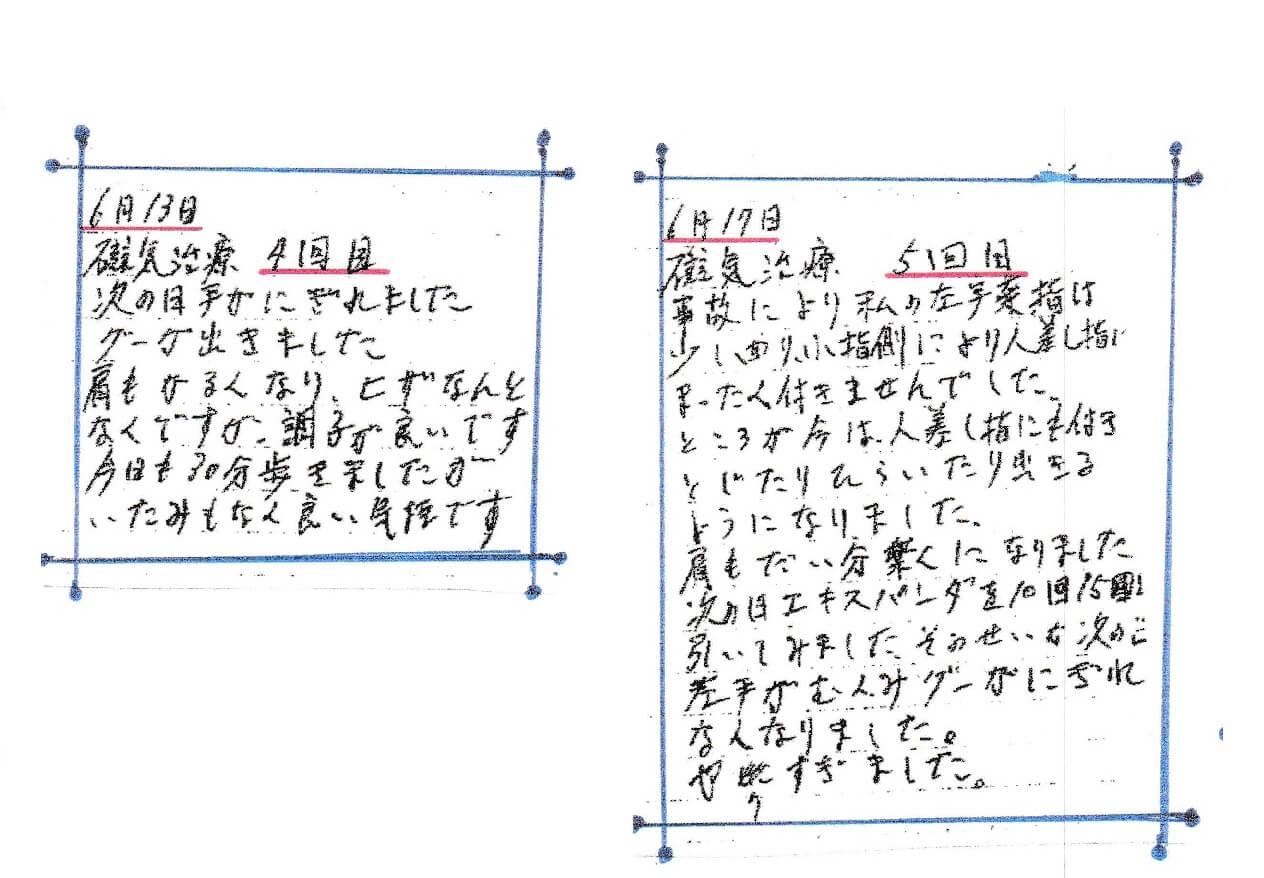 6月13日
磁気治療 4回目
次の日手がにぎれました
グーが出きました
肩もかるくなり、ヒザなんと
なくですが、調子が良いです
今日も30分歩きましたが
いたみもなく良い気持です
6月17日
磁気治療 5回目
事故により私の左手薬指は
少しめり小指側により人差し指に
まったく付きませんでした、
ところが今は、人差し指にも付き
とじたりひらいたり出きる
ようになりました、
肩もだい分楽くになりました
次の日エキスパンダを10回15回
引いてみました そのせいな次の日
左手がむくみグーがにぎれ
なくなりました。
や すぎました。